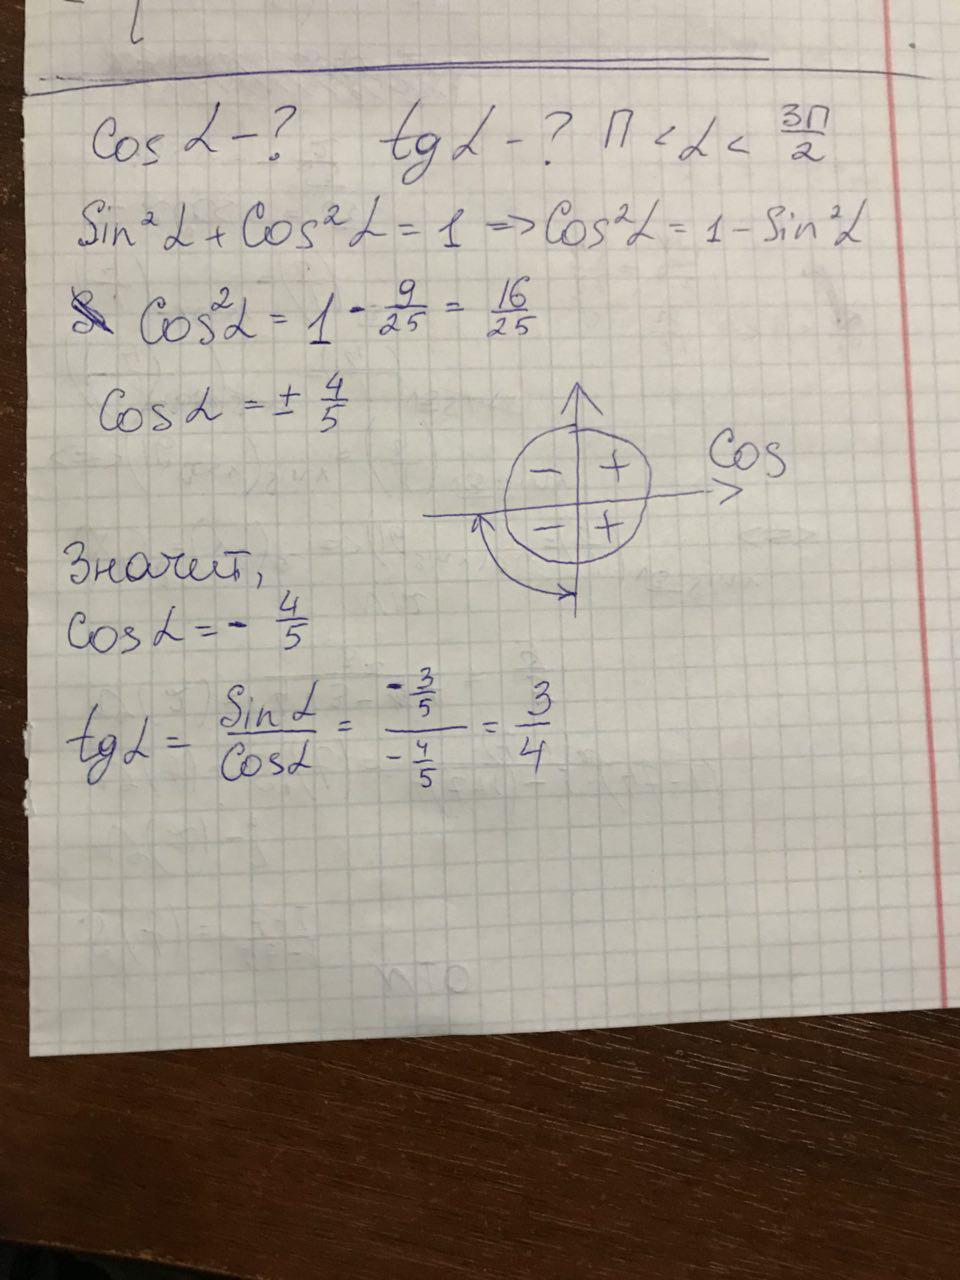 Cos α - ? tg α - ? π < α < 3π/2
Sin²α + Cos²α = 1 => Cos²α = 1 - Sin²α
Cos²α = 1 - 9/25 = 16/25
Cos α = ± 4/5
- + Cos
- +
Значит,
Cos α = - 4/5
tg α = Sin α / Cos α = (-3/5) / (-4/5) = 3/4